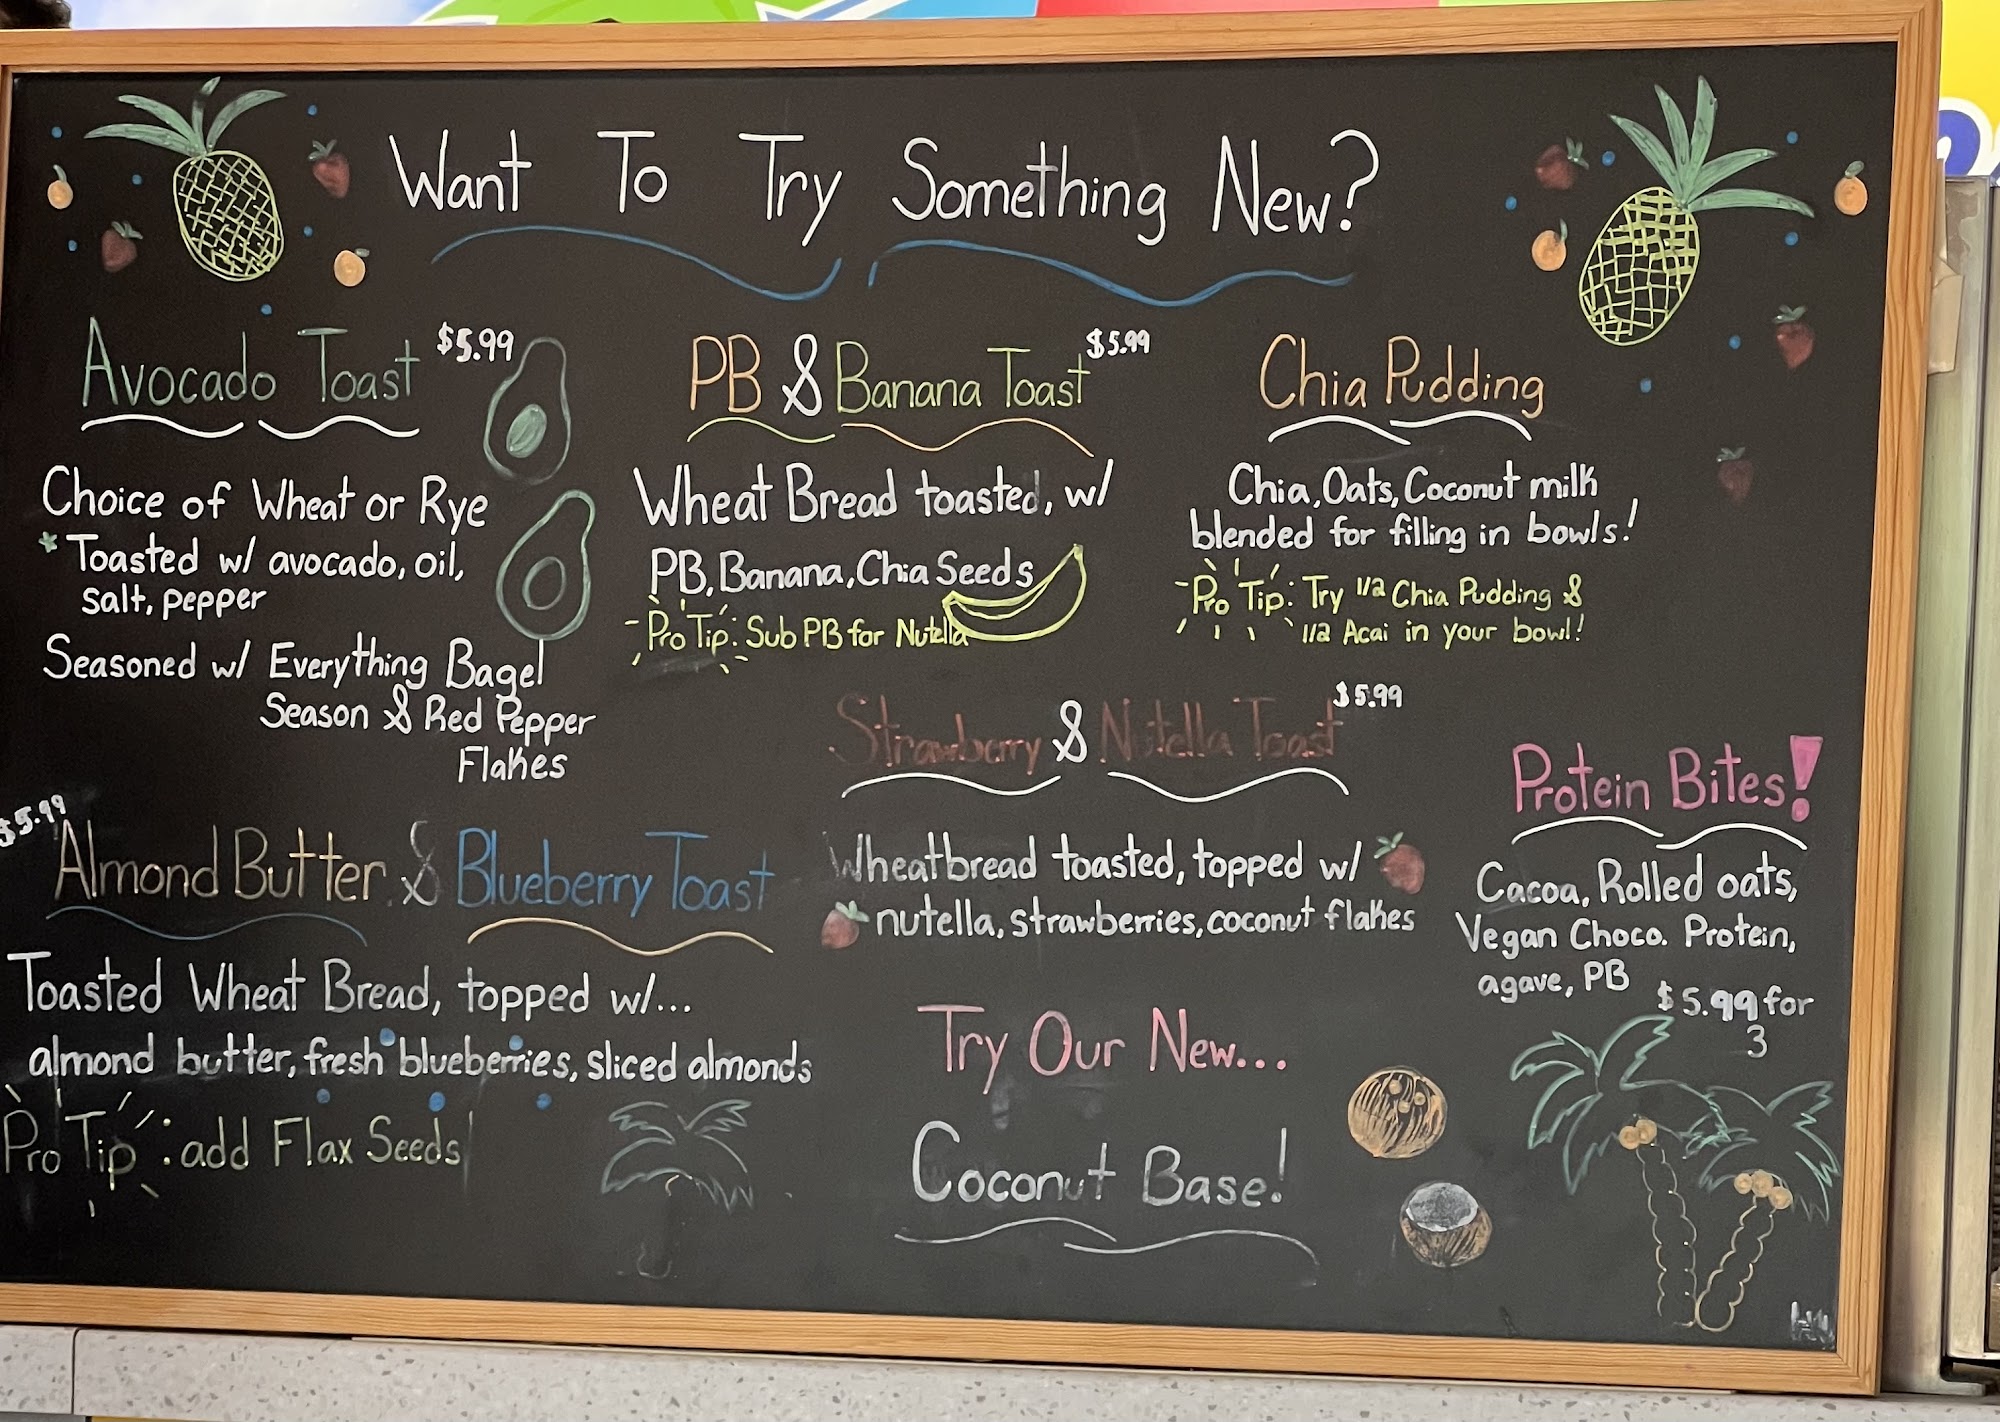 Want To Try Something New?
Avocado Toast $5.99
Choice of Wheat or Rye
* Toasted w/ avocado, oil,
salt, pepper
Seasoned w/ Everything Bagel
Season & Red Pepper
Flakes
PB & Banana Toast $5.99
Wheat Bread toasted, w/
PB, Banana, Chia Seeds
Pro Tip: Sub PB for Nutella
Chia Pudding
Chia, Oats, Coconut milk
blended for filling in bowls!
Pro Tip: Try 1/2 Chia Pudding &
1/2 Acai in your bowl!
Strawberry & Nutella Toast $5.99
Wheatbread toasted, topped w/
nutella, strawberries, coconut flakes
Protein Bites!
Cacoa, Rolled oats,
Vegan Choco. Protein,
agave, PB
$5.99 for
3
$5.99
Almond Butter & Blueberry Toast
Toasted Wheat Bread, topped w/...
almond butter, fresh blueberries, sliced almonds
Pro Tip: add Flax Seeds
Try Our New...
Coconut Base!